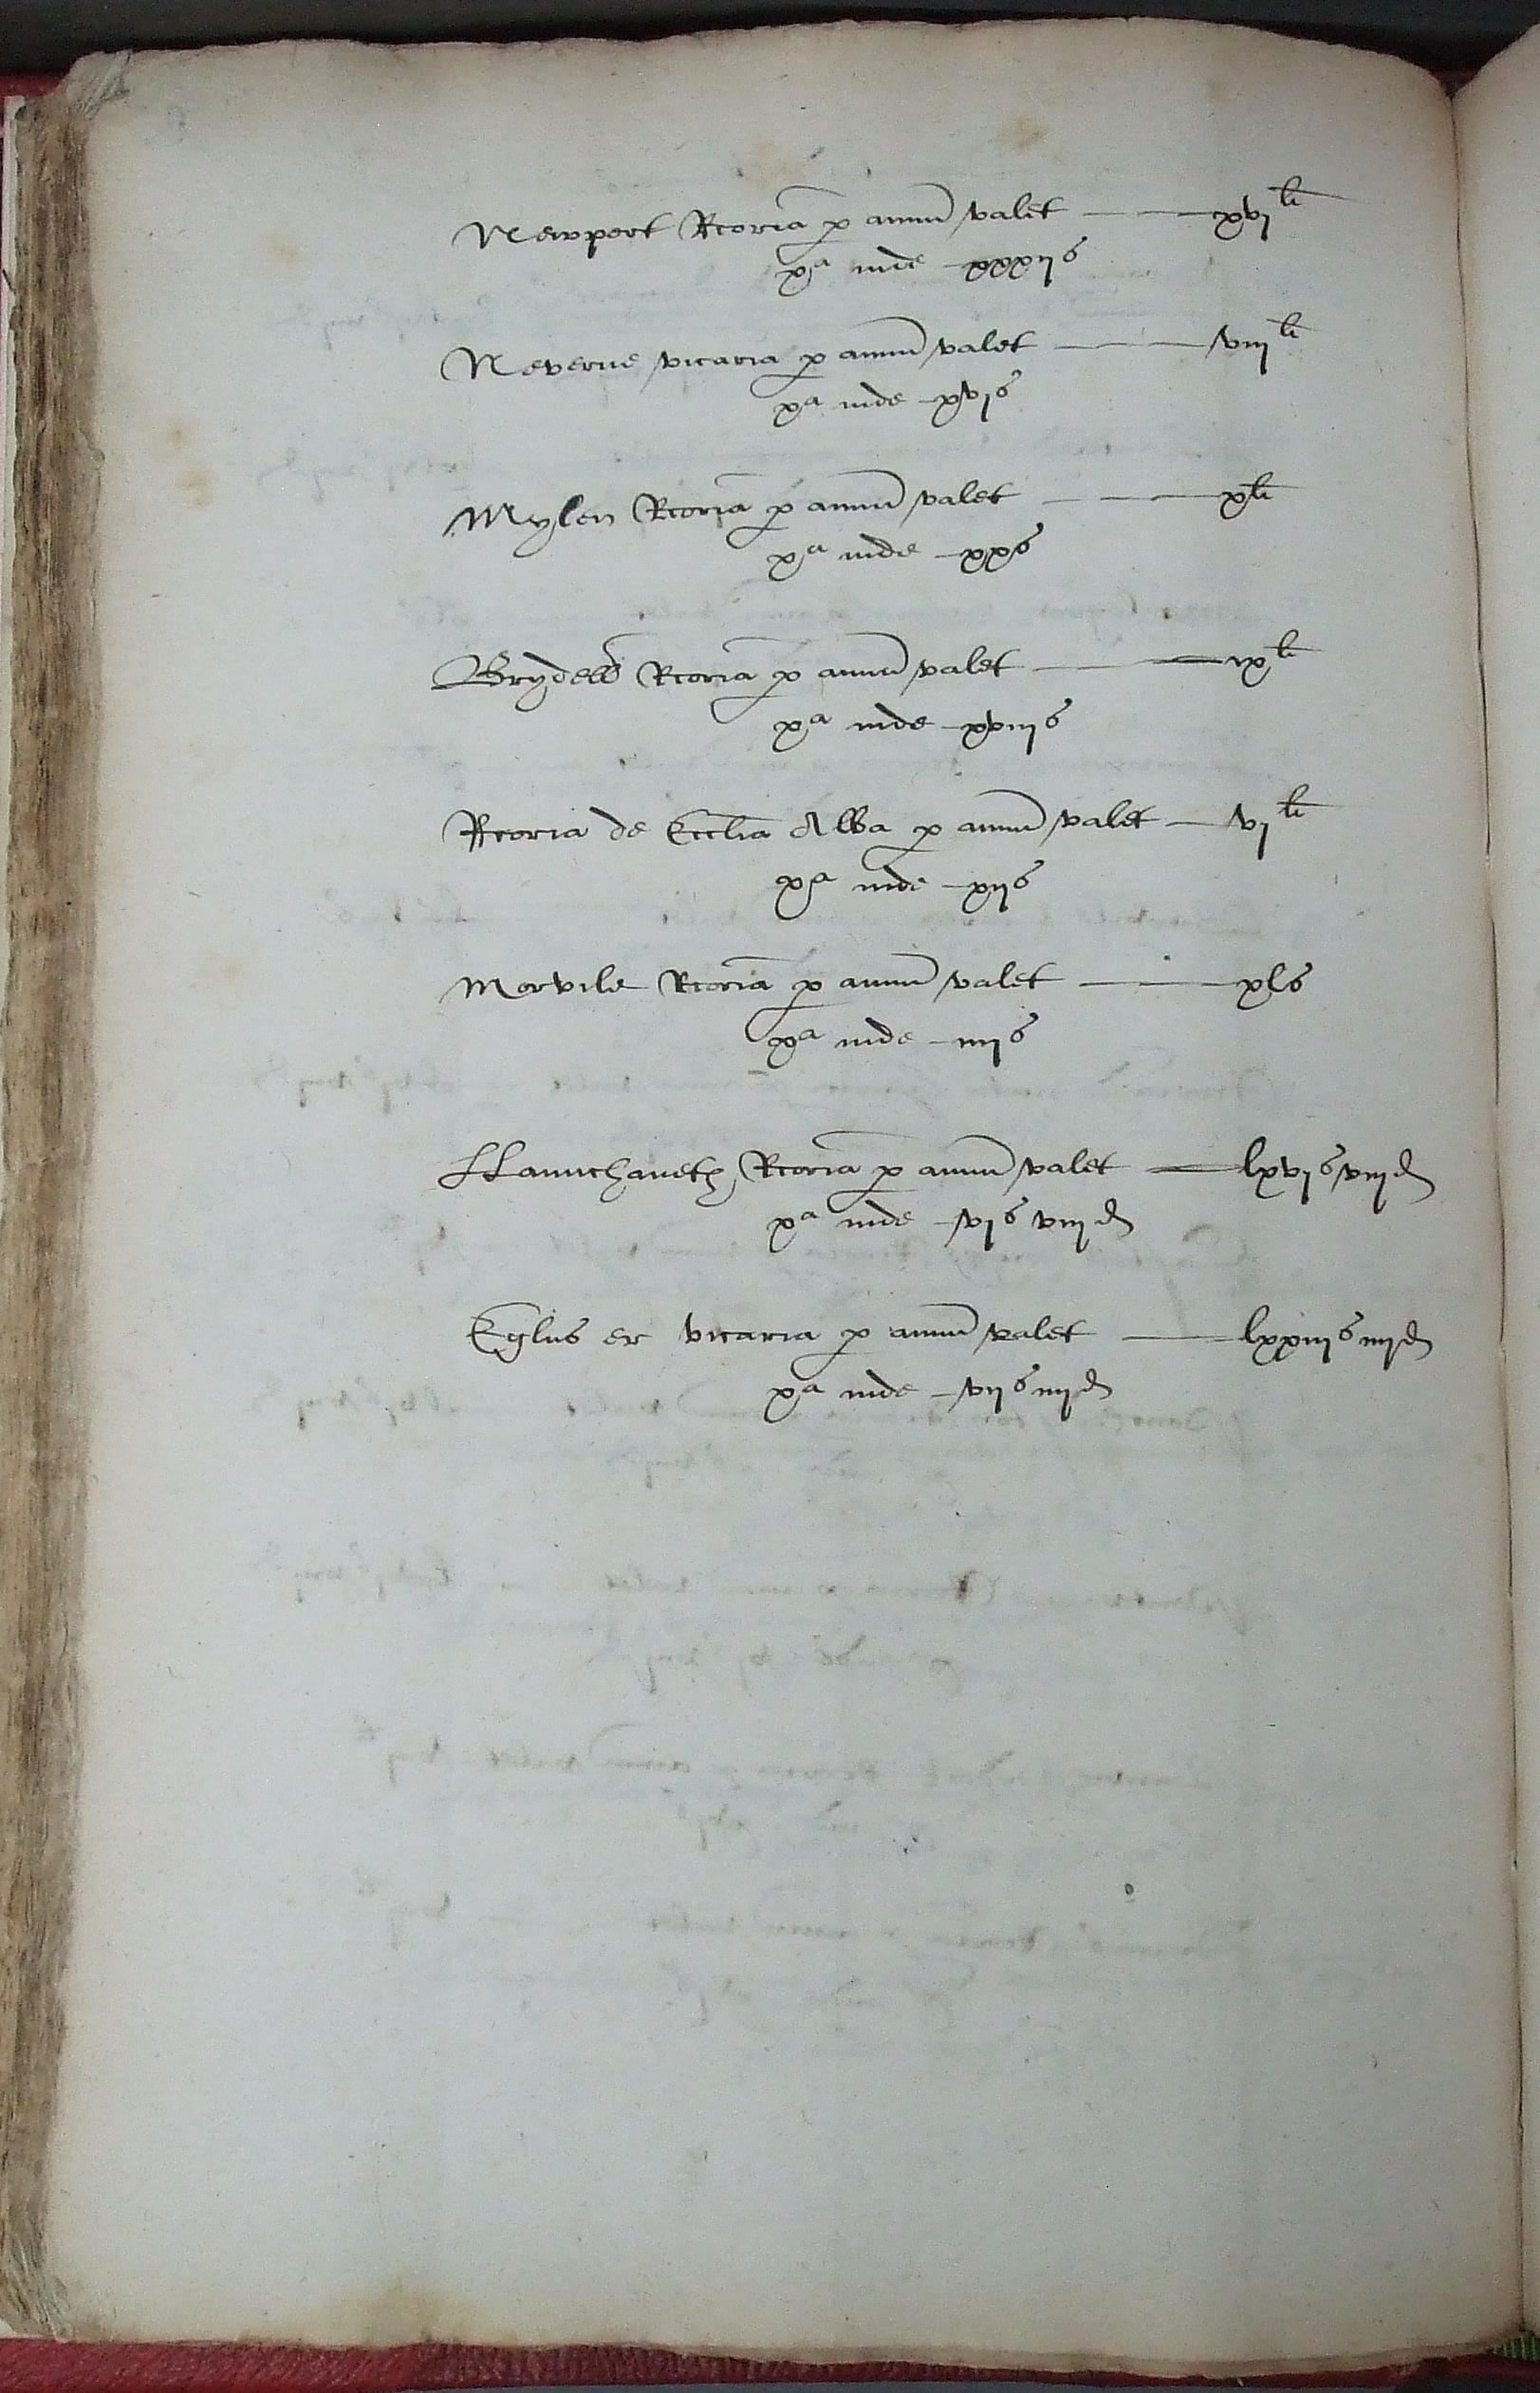 Newport Rcoria p annu valet — — xvi li
xa inde xxxijs
Neverne vicaria p annu valet — — viij li
xa inde xvjs
Mylen Rcoria p annu valet — — — x li
xa inde xxs
Brydell Rcoria p annu valet — — ix li
xa inde xviijs
Rcoria de Ecclia Alba p annu valet — vj li
xa inde xijs
Morvile Rcoria p annu valet — — — xls
xa inde iiijs
LLannchaneth Rcoria p annu valet — lxvjs viijd
xa inde vjs viijd
Eglus er vicaria p annu valet — lxxiijs iiijd
xa inde vijs iiijd